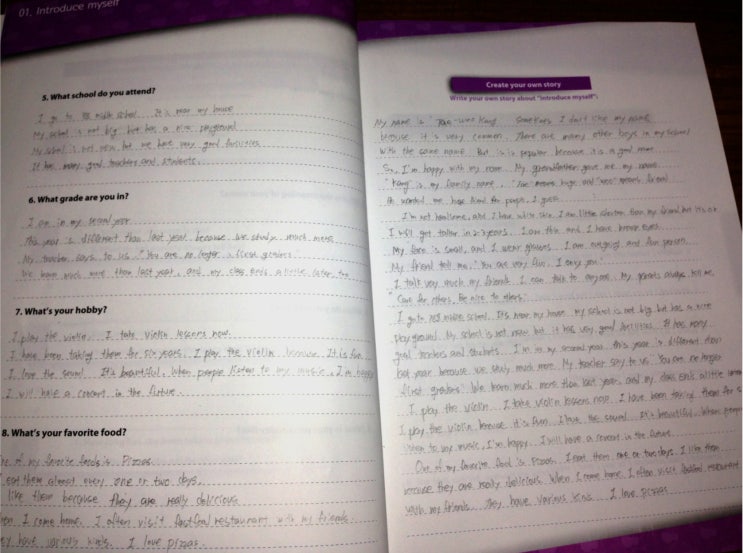 01. Introduce myself
5. What school do you attend?
I go to middle school. It's near my house
My school is not big but has a nice playground
My school is not new but we have very good facilities
It has many good teachers and students.
6. What grade are you in?
I am in my second year
This year is different than last year because we study much more
My teacher says to us "You are no longer a first graders"
We have much more than last year, and my class ends a little later too
7. What's your hobby?
I play the violin. I take violin lessons now.
I have been taking them for six years. I play the violin because It is fun
I love the sound. It's beautiful. When people listen to my music, I'm happy
I will have a concert in the future.
8. What's your favorite food?
of my favorite foods is Pizzas.
eat them almost every one or two days.
like them because they are really delicious
I come home. I often visit fastfood restaurant with my friends.
have various kinds. I love pizzas.
Create your own story
Write your own story about "Introduce myself".
My name is Kang Sometimes I don't like my name
because it is very common. There are many other boys in my school
with the same name. But is is popular because it is a good name
So, I'm happy with my name. My grandfather gave me my name
"Kang" is my family name. means huge and means
hope for people, I guess
I'm not handsome, and I have white skin. I am little shorter than my friend but it's ok
I will get taller in 2~3 years. I am thin and I have brown eyes.
My face is small, and I wear glasses. I am outgoing and fun person.
My friend tell me, "You are very fun, I envy you"
I talk very much my friends. I can talk to anyone. My parents always tell me
"Care for others. Be nice to others."
I go to middle school. It's near my house my school is not big but has a nice
playground. My school is not new but it has very good facilities. It has many
good teachers and students. I'm in my second year. this year is different than
last year because we study much more. My teacher say to us "You are no longer
first graders" We have much more than last year, and my class ends a little
I play the violin. I take violin lessons now. I have been taking them for
I play the violin because it's fun. I love the sound. It's beautiful. When people
listen to my music, I'm happy. I will have a concert in the future
One of my favorite food is Pizzas. I eat them one or two days. I like them
because they are really delicious. When I come home, I often visit fastfood restaurant
with my friends. They have various kins. I love pizzas